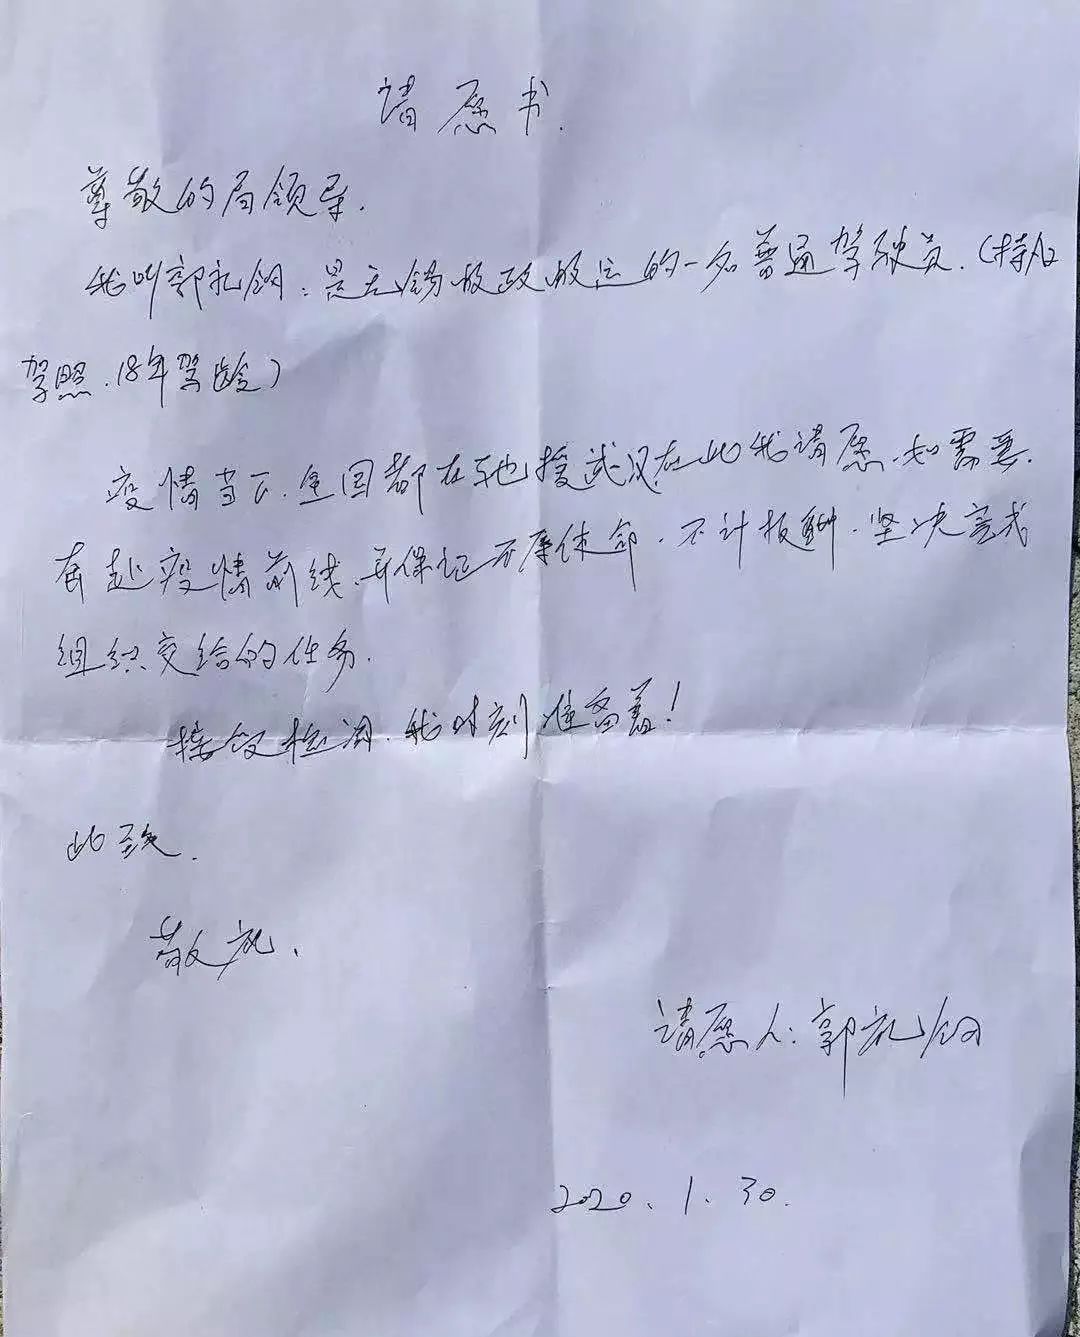 请愿书.
尊敬的局领导.
我叫郭礼钢:是无锡邮政邮运的一名普通驾驶员.(持A2
驾照.18年驾龄)
疫情当下.全国都在驰援武汉在此我请愿.如需要.
奔赴疫情前线.并保证不辱使命.不计报酬.坚决完成
组织交给的任务.
接受,我时刻准备着!
此致.
敬礼、
请愿人:郭礼钢
2020.1.30.